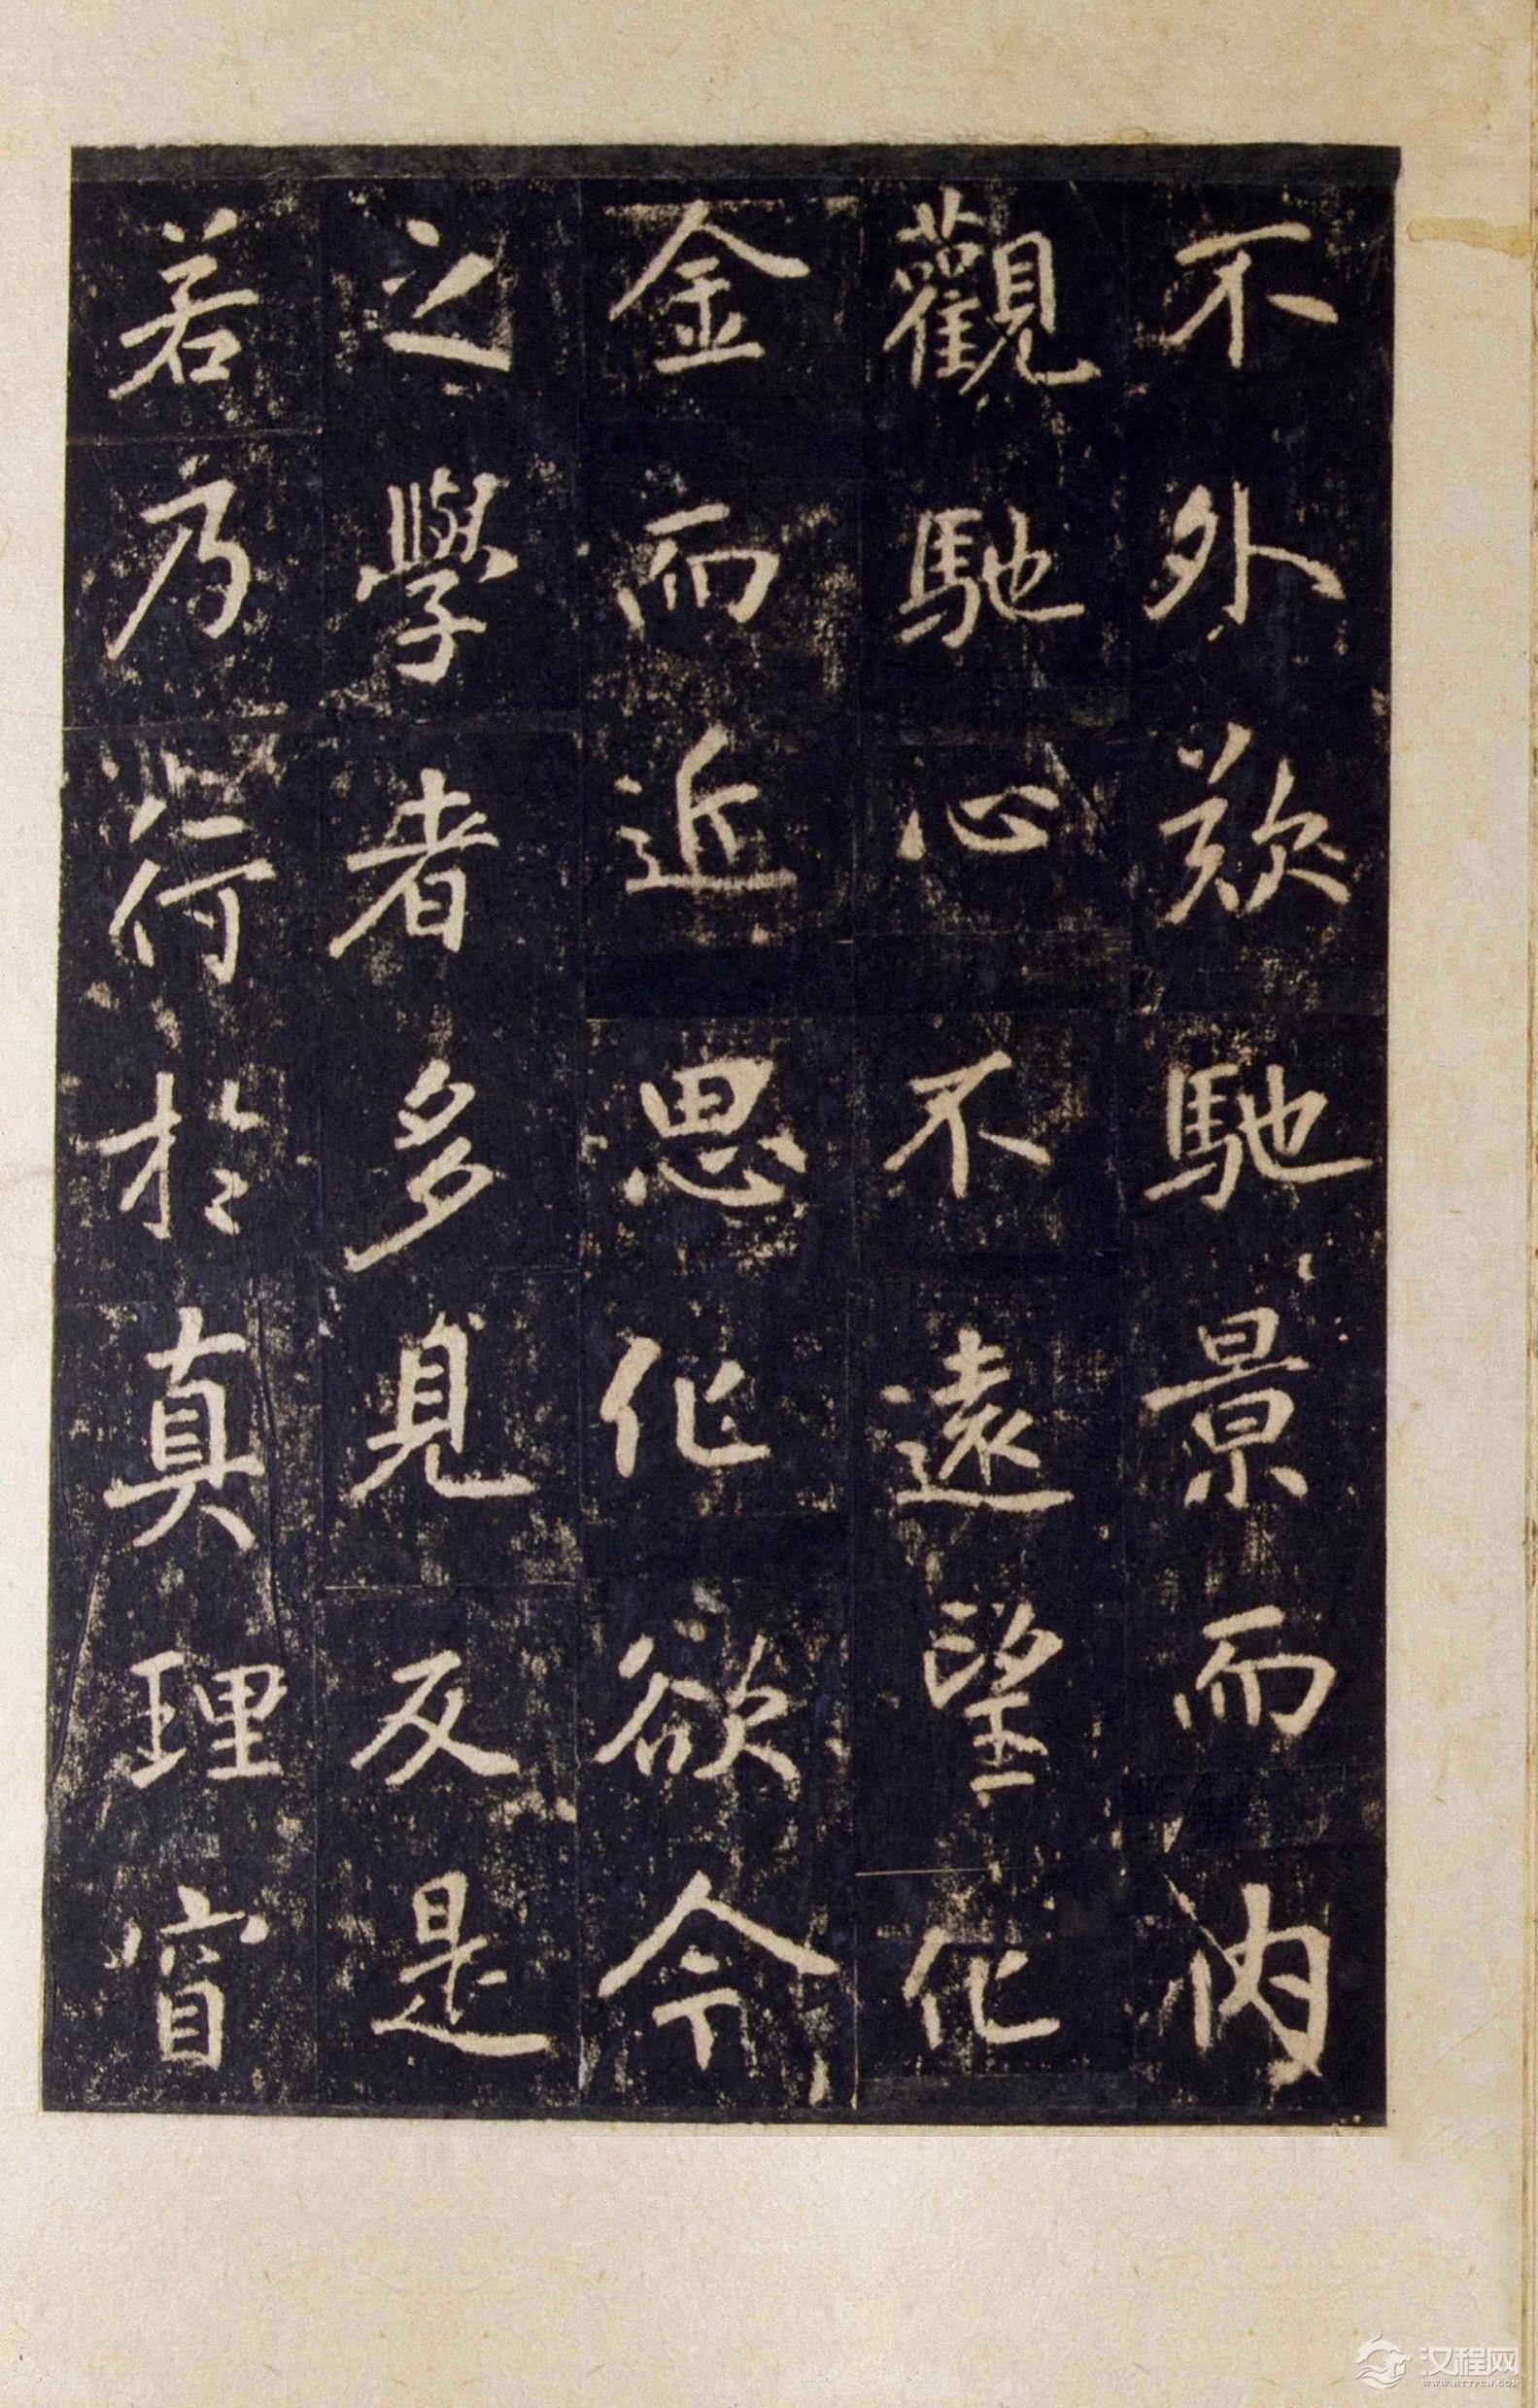 不外欻馳景而内
觀馳心不遠望化
金而近思化欲今
之學者多見反是
若乃行於真理窅
汉程网
WWW.HTTPCN.COM